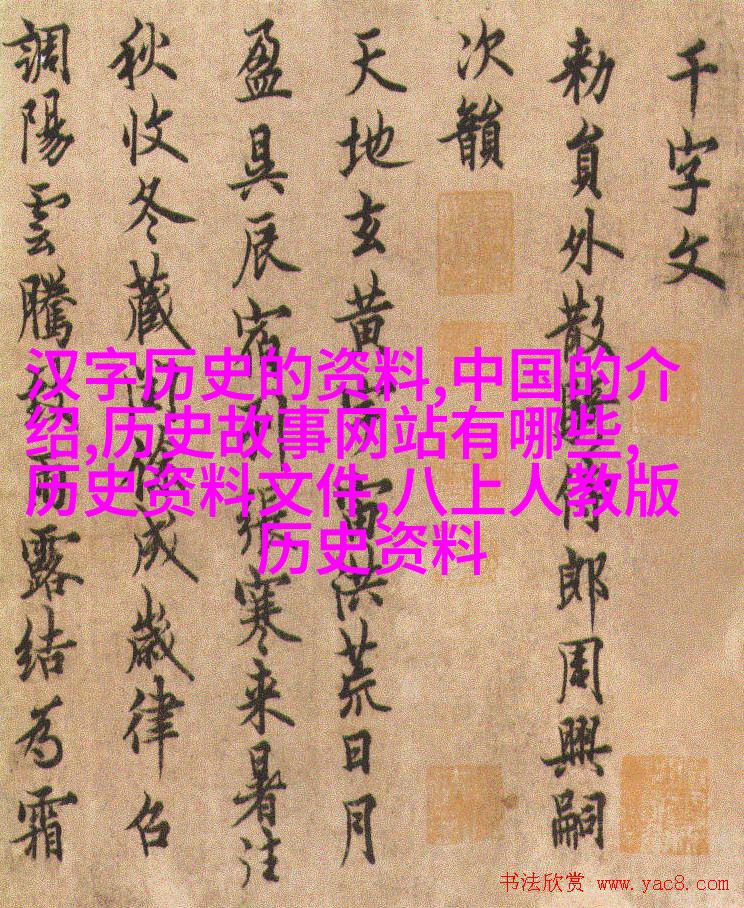 千字文
勅員外散騎侍郎周興嗣
次韻
天地玄黄宇宙洪荒日月
盈昃辰宿列張寒来暑往
秋收冬藏閏餘成歲律召
調陽雲騰致雨露結為霜
汉字历史的资料,中国的介
绍,历史故事网站有哪些,
历史资料文件,八上人教版
历史资料
书法欣赏 www.yac8.com